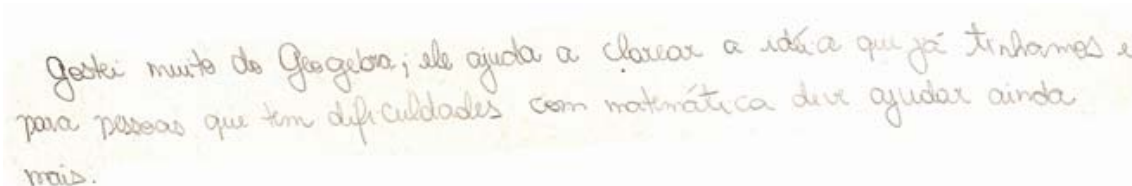 Gostei muito do Geogebra; ele ajuda a clarear a idéia que já tinhamos e
para pessoas que tem dificuldades com matemática deve ajudar ainda
mais.